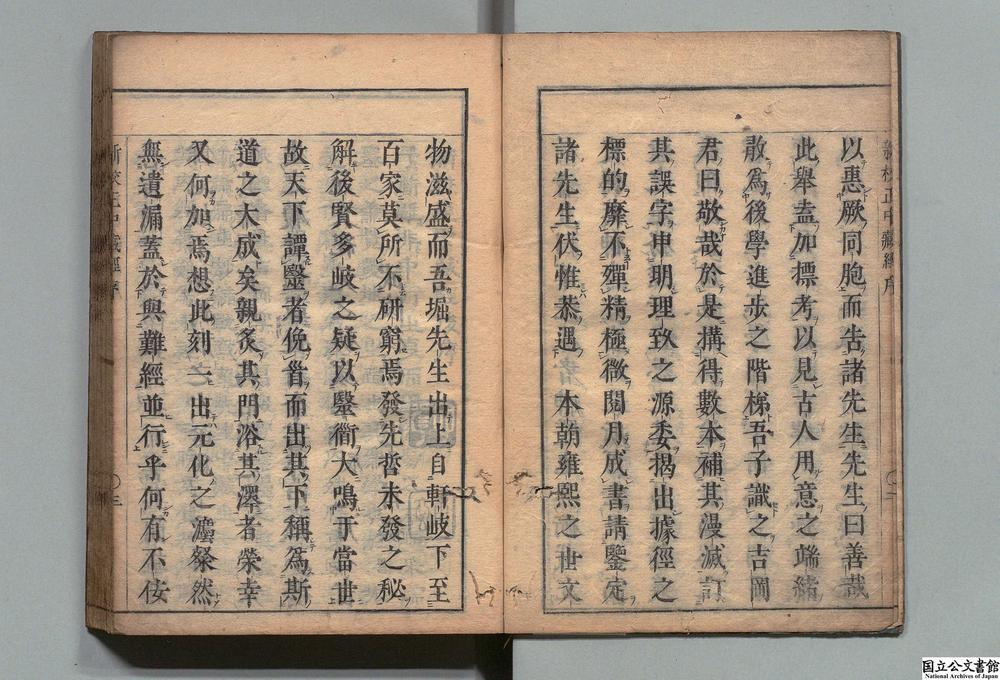 以惠厥同胞而告諸先生先生曰善哉
此舉盍加標考以見古人用意之端緒
散為後學進步之階梯吾子識之吉岡
君曰敬哉於是搆得數本補其漫滅訂
其誤字申明理致之源委揭出據徑之
標的靡不殫精極微閱月成書請鑒定
諸先生伏惟恭遇本朝雍熙之世文
物滋盛而吾堀先生出上自軒岐下至
百家莫所不研窮焉發先哲未發之秘
解後賢多岐之疑以毉衟大鳴于當世
故天下譚毉者俛首而出其下稱為斯
道之大成矣親炙其門浴其澤者榮幸
又何加焉想此刻之出元化之灋粲然
無遺漏蓋於與難經並行乎何有不佞
新校正中藏經序
新校正中藏經序
国立公文書館
National Archives of Japan